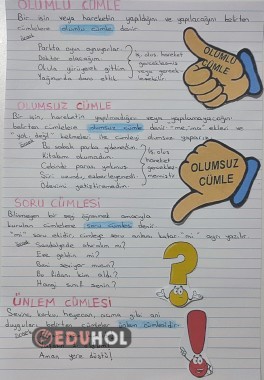 OLUMLU CÜMLE
Bir işin veya hareketin yapıldığını ve yapılacağını belirten
cümlelere olumlu cümle denir.
Örnek
Parkta oyun oynuyorlar.
Doktor olacağım.
Okula yürüyerek gittim.
Yağmurda dans ettik.
İş, oluş hareket
gerçekleşmiş
veya gerçek-
OLUMLU
CÜMLE
OLUMSUZ CÜMLE
Bir işin, hareketin yapılmadığını veya yapılamayacağını
belirten cümlelere olumsuz cümle denir. "me, ma" ekleri ve
"yok, değil" kelimeleri ile cümleyi olumsuz yaparız.
Örnek
Bu sokak parka gidemedin.
Kitabım okumadım.
Cebinde parası yoktu.
Ödevini yetiştiremedin.
İş, oluş
hareket
OLUMSUZ
CÜMLE
SORU CÜMLESİ
Bilinmeyen bir şeyi öğrenmek amacıyla
kurulan cümlelere soru cümlesi denir.
"mi" soru ekidir. cümleye soru anlamı katar "mi" ayrı yazılır.
Örnek
Sandalyede oturalım mı?
Eve geldin mi?
Beni seviyor musun?
Bu fidanı kim aldı?
Hangi sınıf senin?
ÜNLEM CÜMLESİ
Sevinç, korku, heyecan, acıma gibi ani
duyguları belirten cümleler ünlem cümlesidir.
EDUHOL
Aman yere düştü!